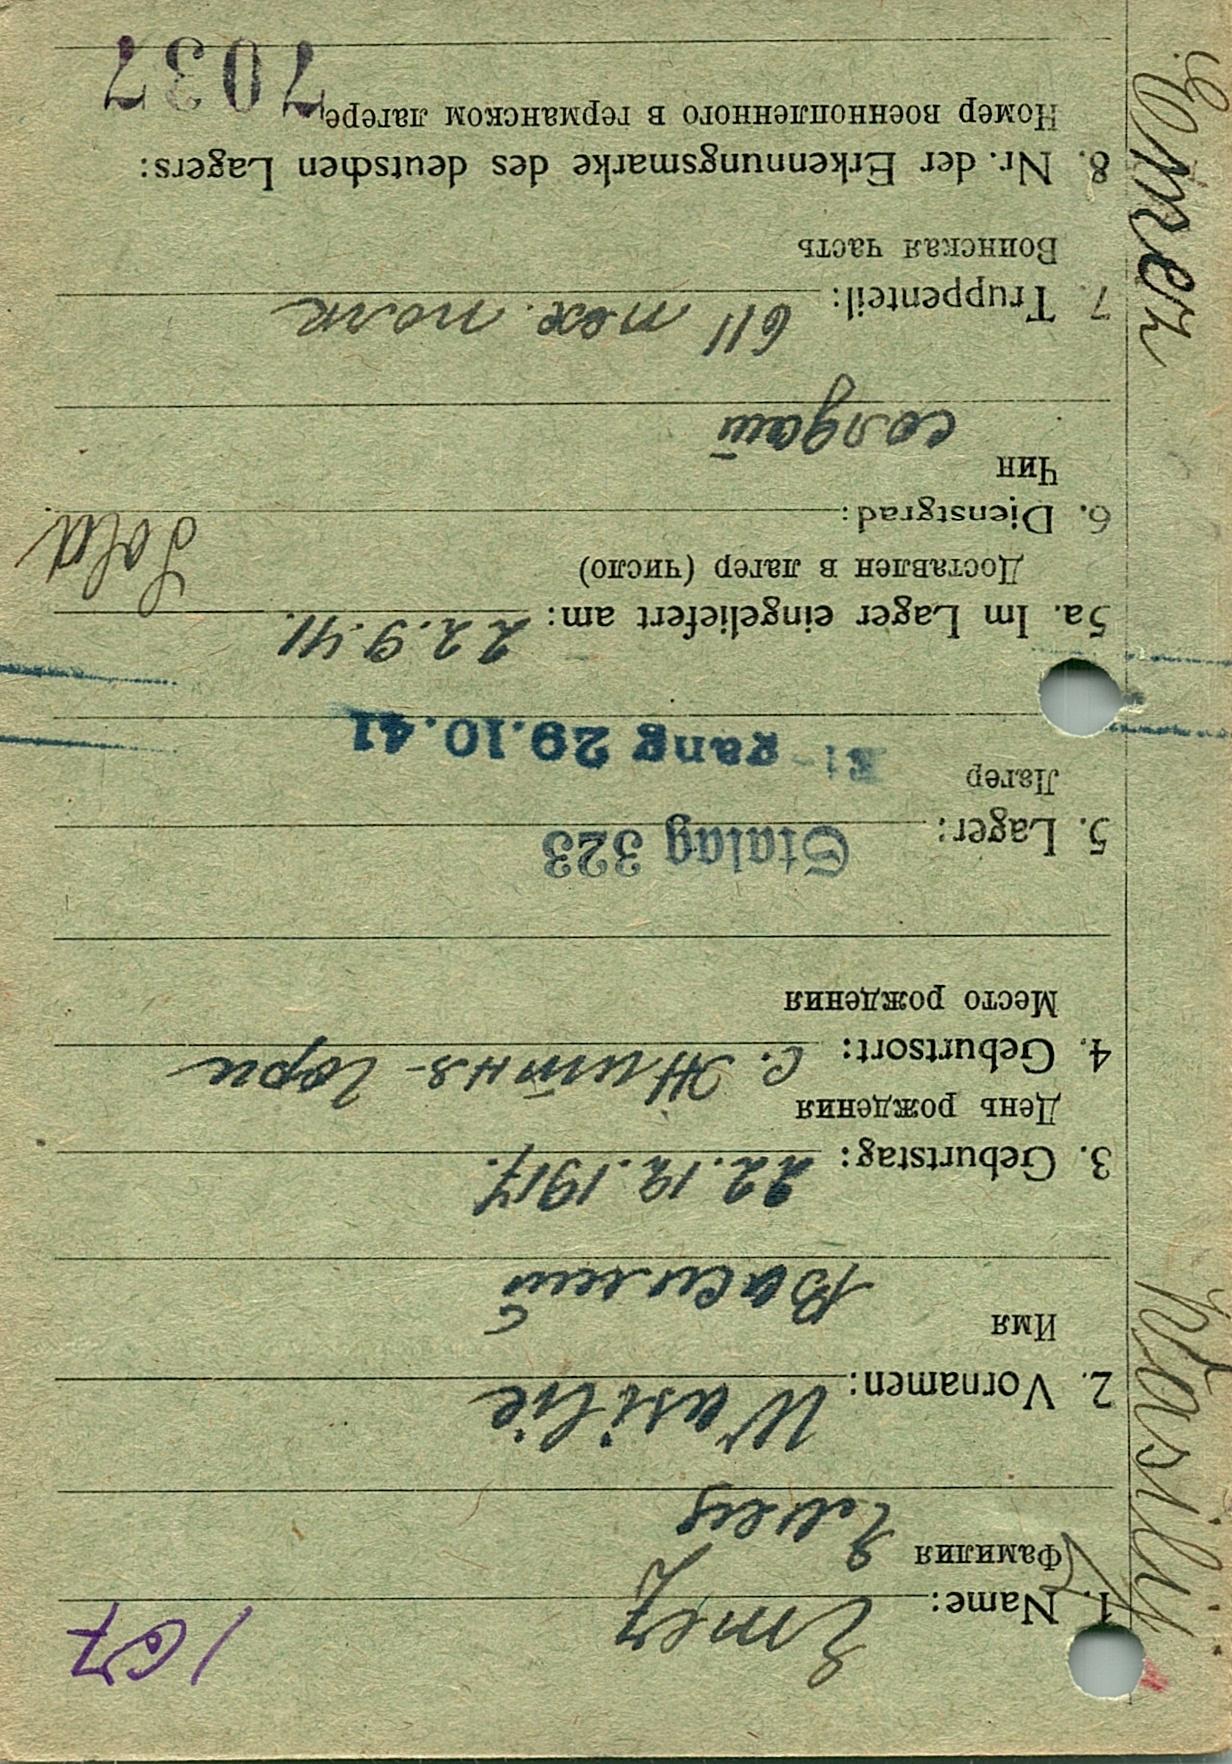 167
1. Name: Emez
Фамилия Емец
2. Vornamen: Wasilie
Имя Василий
3. Geburtstag: 22.12.1917.
День рождения
4. Geburtsort: с. Житня-гори
Место рождения
5. Lager: Stalag 323
Лагер
gang 29.10.41
5a. Im Lager eingeliefert am: 22.9.41.
Доставлен в лагер (число)
6. Dienstgrad: Sold
Чин
солдат
7. Truppenteil: 611 мех. полк
Воинская часть
8. Nr. der Erkennungsmarke des deutschen Lagers:
Номер военнопленного в германском лагере
7037
Wasily